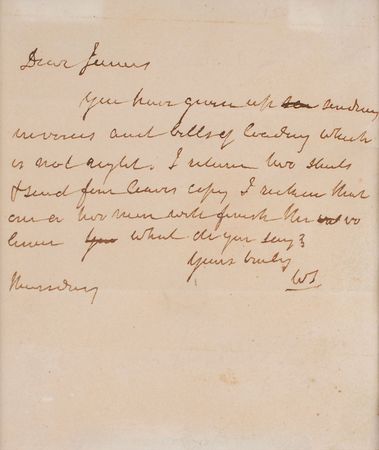 Dear James
You have given up sending
invoices and bills of loading which
is not right. I return two sheets
& send four leaves copy I reckon that
one or two more will finish the vo
lume what do you say?
Yours truly
WS
Thursday